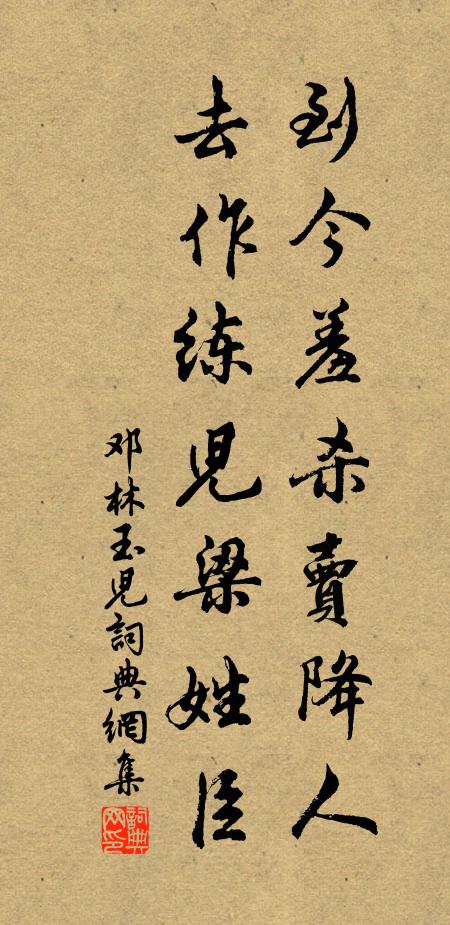 到今羞杀賣降人
去作练児梁姓臣
邓林玉児詞典網集
詞典网印